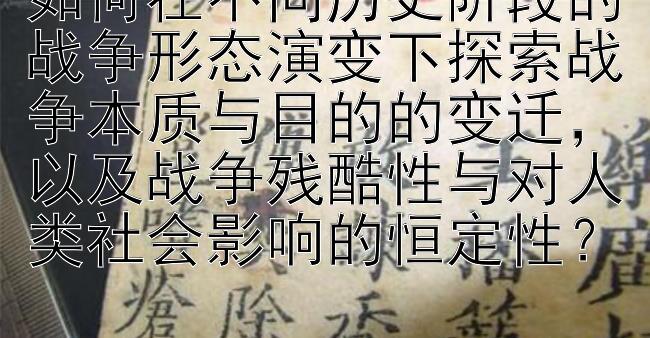 如何在不同历史阶段的
战争形态演变下探索战
争本质与目的的变迁，
以及战争残酷性与对人
类社会影响的恒定性？
瘡 除